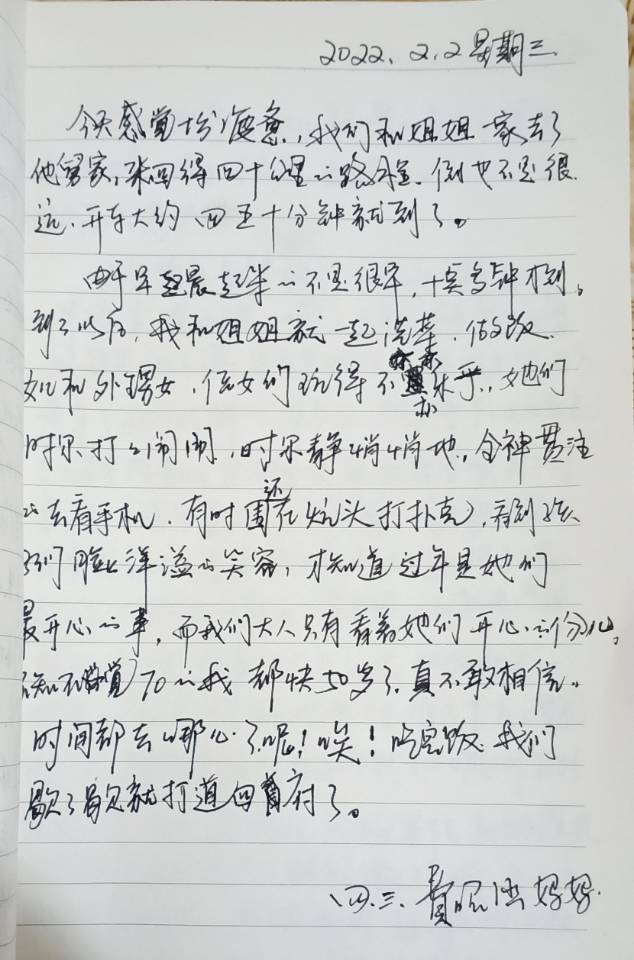 2022.2.2星期三
今天感觉十分疲惫,我们和姐姐一家去了
他舅家,来回得四十公里的路程.倒也不是很
远.开车大约四五十分钟就到了。
由于早晨起来的不是很早,十点多钟才到。
到了以后,我和姐姐就一起洗菜.做饭.
女儿和外甥女,侄女们玩得不亦乐乎.,她们
时不打打闹闹,时不静悄悄地,全神贯注
的去看手机.有时还围在炕头打扑克,看到孩
子们脸上洋溢的笑容,才知道过年是她们
最开心的事,而我们大人只有看着她们开心的份儿,
不知不觉70的我都快50岁了.真不敢相信。
时间都去哪儿了呢!唉!吃完饭.我们
歇了歇就打道回府了。
四.三.妈妈.